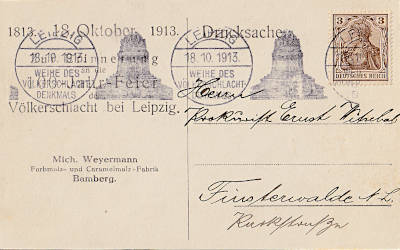 1813. 18. Oktober. 1913.
Drucksache
Zur Erinnerung
an die
Jahr-Feier
der
Völkerschlacht bei Leipzig.
LEIPZIG
18.10.1913.
WEIHE DES
VÖLKERSCHLACHT-
DENKMALS
LEIPZIG
18.10.1913.
WEIHE DES
VÖLKERSCHLACHT-
3 3
DEUTSCHES REICH
Herrn
Ernst
Finsterwalde N.L.
Mich. Weyermann
Farbmalz- und Caramelmalz-Fabrik
Bamberg.